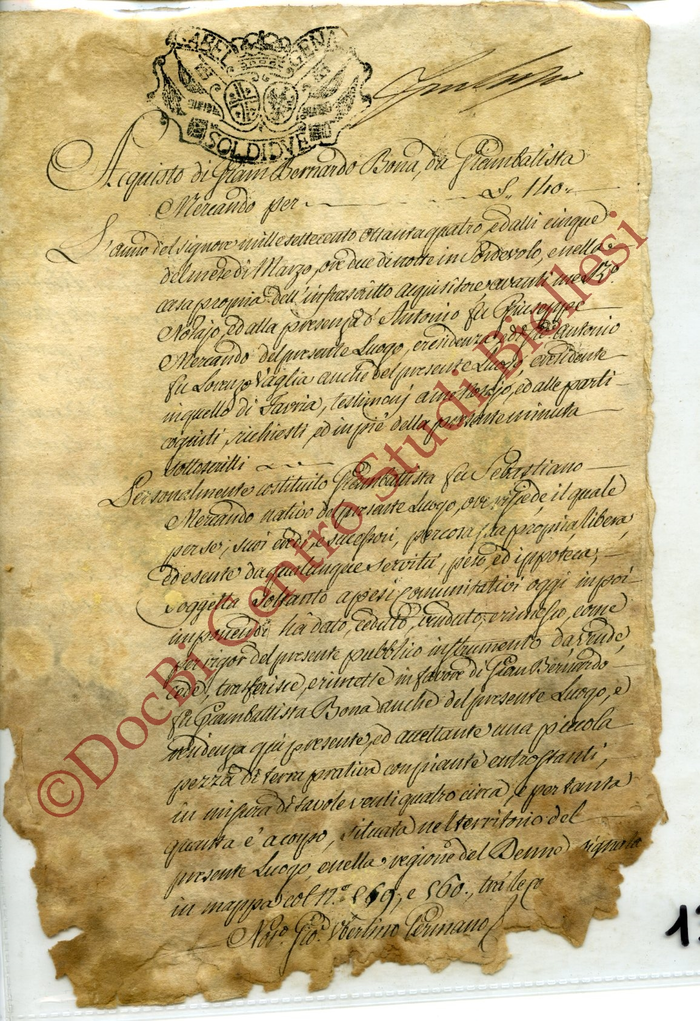 GABEL GENA
SOLDI DVE
Acquisto di Gioan Bernardo Bona, da Giambatista
Mercando per L. 140
L'anno del signore mille settecento ottanta quatro, ed alli cinque
del mese di Marzo, ore due di notte in Sordevolo, e nella
casa propria dell'infrascritto acquisitore avanti me
Notajo, ed alla presenza d'Antonio fu Giuseppe
Mercando del presente Luogo, e residenza, e di Antonio
fu Lorenzo Vaglia anche del presente Luogo, e residente
in quello di Favria, testimonj a me Notajo, ed alle parti
cogniti, richiesti ed in piè della presente minuta
sottoscritti
Personalmente costituito Giambattista fu Sebastiano
Mercando nativo del presente Luogo, ove risiede il quale
per se, suoi eredi, e successori, per cosa sua propria, libera,
ed esente da qualunque servitù, peso, ed ippoteca,
soggetta soltanto a pesi comunitativi oggi imposti
imponendi ha dato, ceduto, venduto, e rimesso, come
per rigor del presente pubblico instrumento da, vende,
cede, trasferisce, e rimette in favore di Gioan Bernardo
fu Giambattista Bona anche del presente Luogo, e
residenza qui presente, ed accettante una piccola
pezza di terra prativa con piante entrostanti,
in misura di tavole venti quatro circa, e per tanta
quanta è a corpo, situata nel territorio del
presente Luogo, e nella regione del Denno signata
in mappa col N.º 169, e 160., tra le co
Not.º Gio. Ubertino Germano
©DocBi-Centro Studi Biellesi